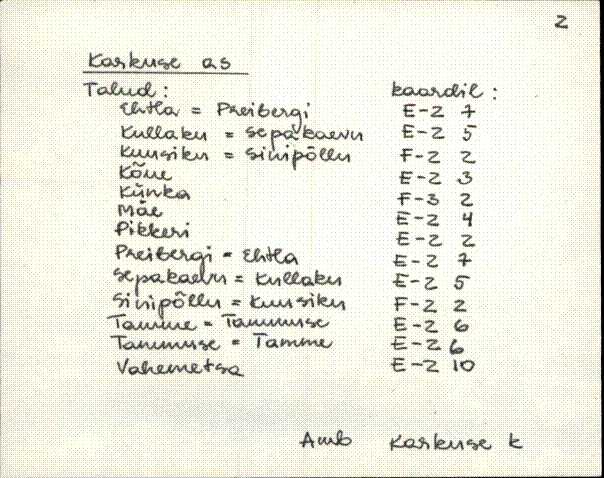 2
Karkuse as
Talud: kaardil:
Ehtla = Preibergi E-2 7
Kullaku = Sepakaevu E-2 5
Kuusiku = Sinipõllu F-2 2
Kõue E-2 3
Künka F-3 2
Mäe E-2 4
Pikkeri E-2 2
Preibergi = Ehtla E-2 7
Sepakaevu = Kullaku E-2 5
Sinipõllu = Kuusiku F-2 2
Tamme = Tammuse E-2 6
Tammuse = Tamme E-2 6
Vahemetsa E-2 10
Amb Karkuse k